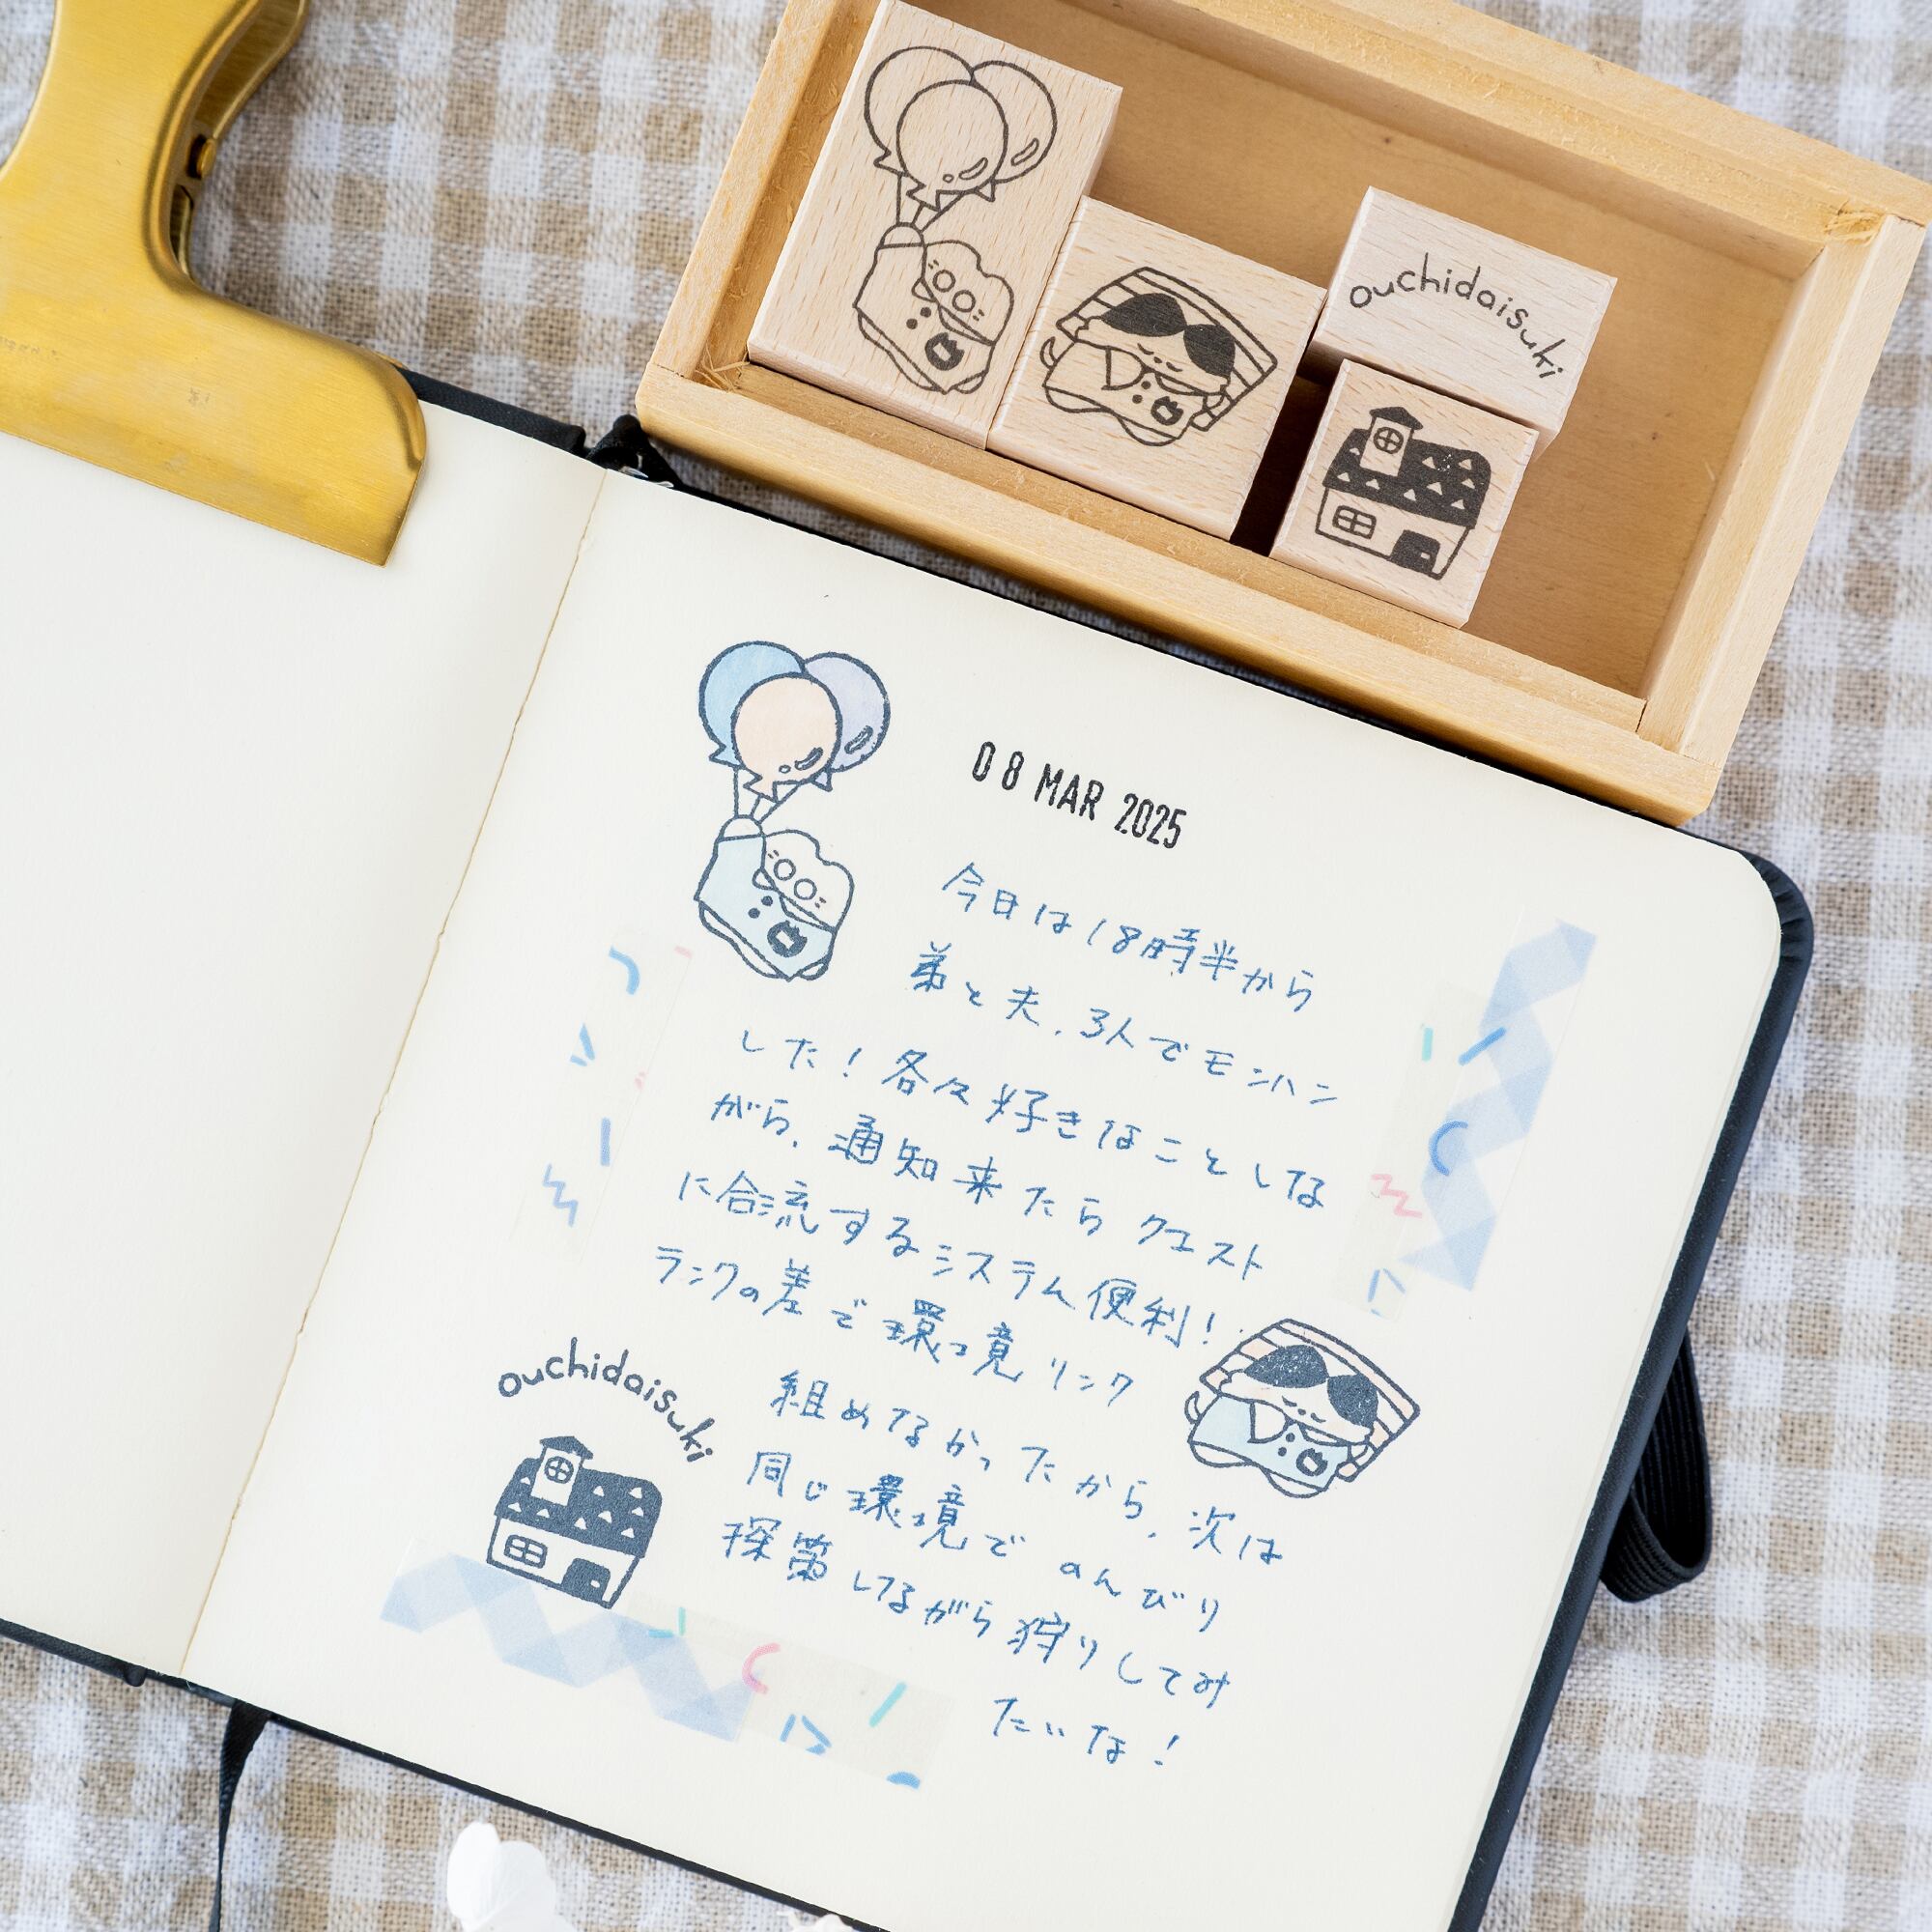 ouchidaisuki
08 MAR 2025
今日は18時半から
弟と夫、3人でモンハン
した！各々好きなことしな
がら、通知来たらクエスト
に合流するシステム便利！
ランクの差で環境リンク
組めなかったから、次は
同じ環境でのんびり
探策しながら狩りしてみ
たいな！
ouchidaisuki